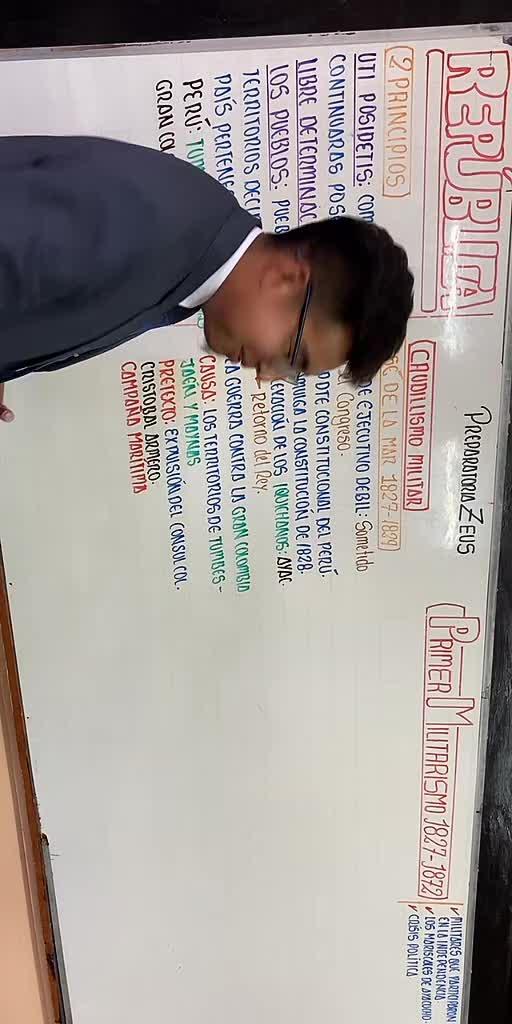 PREPARATORIA ZEUS
REPÚBLICA
PRIMER MILITARISMO 1827-1872
✓ MILITARES QUE PARTICIPARON
EN LA INDEPENDENCIA.
✓ LOS MARISCALES DE AYACUCHO.
✓ CRISIS POLÍTICA
2 PRINCIPIOS
UTI POSIDETIS:
CONTINUARAS
LIBRE
LOS PUEBLOS:
TERRITORIOS
PAÍS
PERÚ:
GRAN
CAUDILLISMO MILITAR
DE LA MAR 1827-1829
EJECUTIVO DEBIL: Sometido
Congreso.
CONSTITUCIONAL DEL PERÚ.
LA CONSTITUCIÓN DE 1828.
DE LOS IQUICHANOS: AYAC.
Retorno del Rey.
GUERRA CONTRA LA GRAN COLOMBIA
CAUSA: LOS TERRITORIOS DE TUMBES -
JAEN Y MAYNAS
PRETEXTO: EXPULSIÓN DEL CONSUL COL.
CRISTOBAL ARMERO.
CAMPAÑA MARITIMA